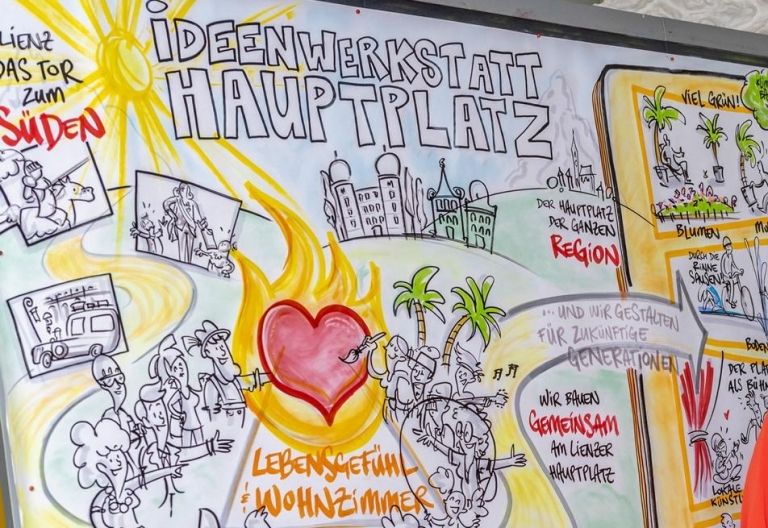 LIENZ
DAS TOR
ZUM
SÜDEN
IDEENWERKSTATT
HAUPTPLATZ
VIEL GRÜN!
BLUMEN
DER HAUPTPLATZ
DER GANZEN
REGION
DURCH DIE
RINNE
SAUSEN
... UND WIR GESTALTEN
FÜR ZUKÜNFTIGE
GENERATIONEN
BODEN
DER PLATZ
ALS BÜHNE
WIR BAUEN
GEMEINSAM
AM LIENZER
HAUPTPLATZ
LEBENSGEFÜHL
& WOHNZIMMER
LOKALE
KÜNSTL